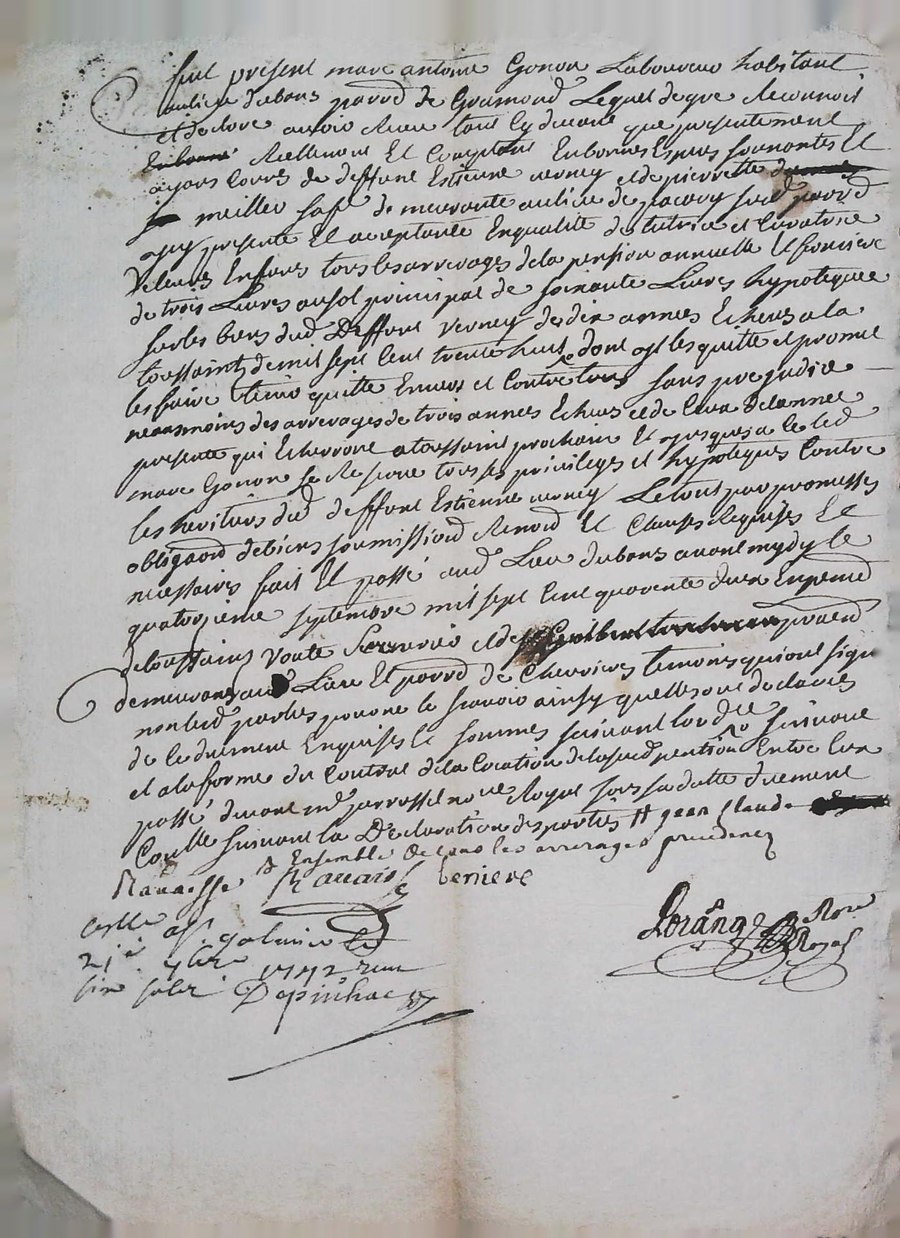 fut présent marc antoine Gonon Laboureur habitant
au lieu dubans parr[d] de Gramond Lequel de gre Reconnoit
et declare avoir Receu tant cy devant que presentement
Reellement Et Comptant En bonnes Espesses sonnantes Et
ayans Cours de deffunt Estienne verney et de pierrette
meiller sa fe de meurante au lieu de parr[d]
icy presente Et acceptante En qualité de tutrice et Curatrice
de leurs Enfans tous les arrerages de la pension annuelle Et fonciere
de trois Livres au sol principal de soixante Livres hypotequée
sur les biens dud Deffunt Verney de dix années Echeues a la
toussaints de mil sept Cent trente huit dont il les quitte et promet
les faire tenir quitte Envers et Contre tous sans prejudice
neanmoins des arrerages de trois années Echeues et de Celle de lannee
presente qui Echerront a toussaint prochain Et jusques a ce led
marc Gonon se Reserve tous ses privileges et hypoteques Contre
les heritiers dud deffunt Estienne verney Le tout par promesses
obliga[ond] de biens soumission[d] Renon[d] Et Clauses Requises Et
necessaires fait Et passé aud Lieu dubans avant mydy le
quatorzieme septembre mil sept Cent quarante deux En presence
de toussains Voute et de
demeurans aud Lieu Et parr[d] de Chevrieres temoins qui ont signé
non lesd parties pour ne le scavoir ainsy quelles ont declarées
de ce duement Enquises Et sommées suivant lord[ce]
et a la forme du Contrat de la Creation de la susd pention suivant
passé devant m[e] no[re] Royal sous sa datte duement
Conlle suivant la Declaration des parties H jean Claude
Ensemble de tous les arrerages precedens
Ravaisse Ravaisse
Conlle a s[t] galmier le
21[e] 7bre 1742 Reçu
six sols Depinhac
Lorang Nore
Royal